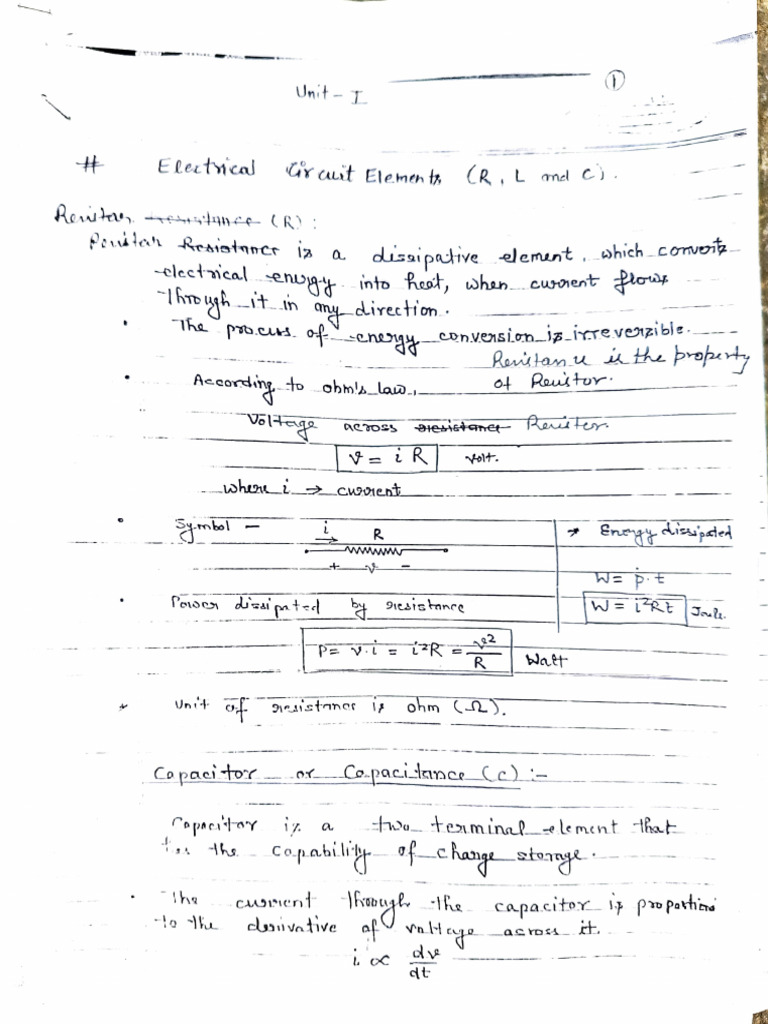 Unit - I
1
# Electrical Circuit Elements (R, L and C).
Resistor resistance (R) :
Resistor Resistance is a dissipative element, which converts
electrical energy into heat, when current flows
through it in any direction.
• The process of energy conversion is irreversible.
Resistance is the property
of Resistor.
• According to ohm's law,
Voltage across resistance Resistor.
v = i R volt.
where i → current
• Symbol –
i
R
+ v -
* Energy dissipated
W = p·t
W = i²Rt Joule.
• Power dissipated by resistance
P = v·i = i²R = v²/R Watt
* Unit of resistance is ohm (Ω).
Capacitor or Capacitance (c) :-
Capacitor is a two terminal element that
has the capability of charge storage.
• The current through the capacitor is proportional
to the derivative of voltage across it.
i ∝ dv/dt